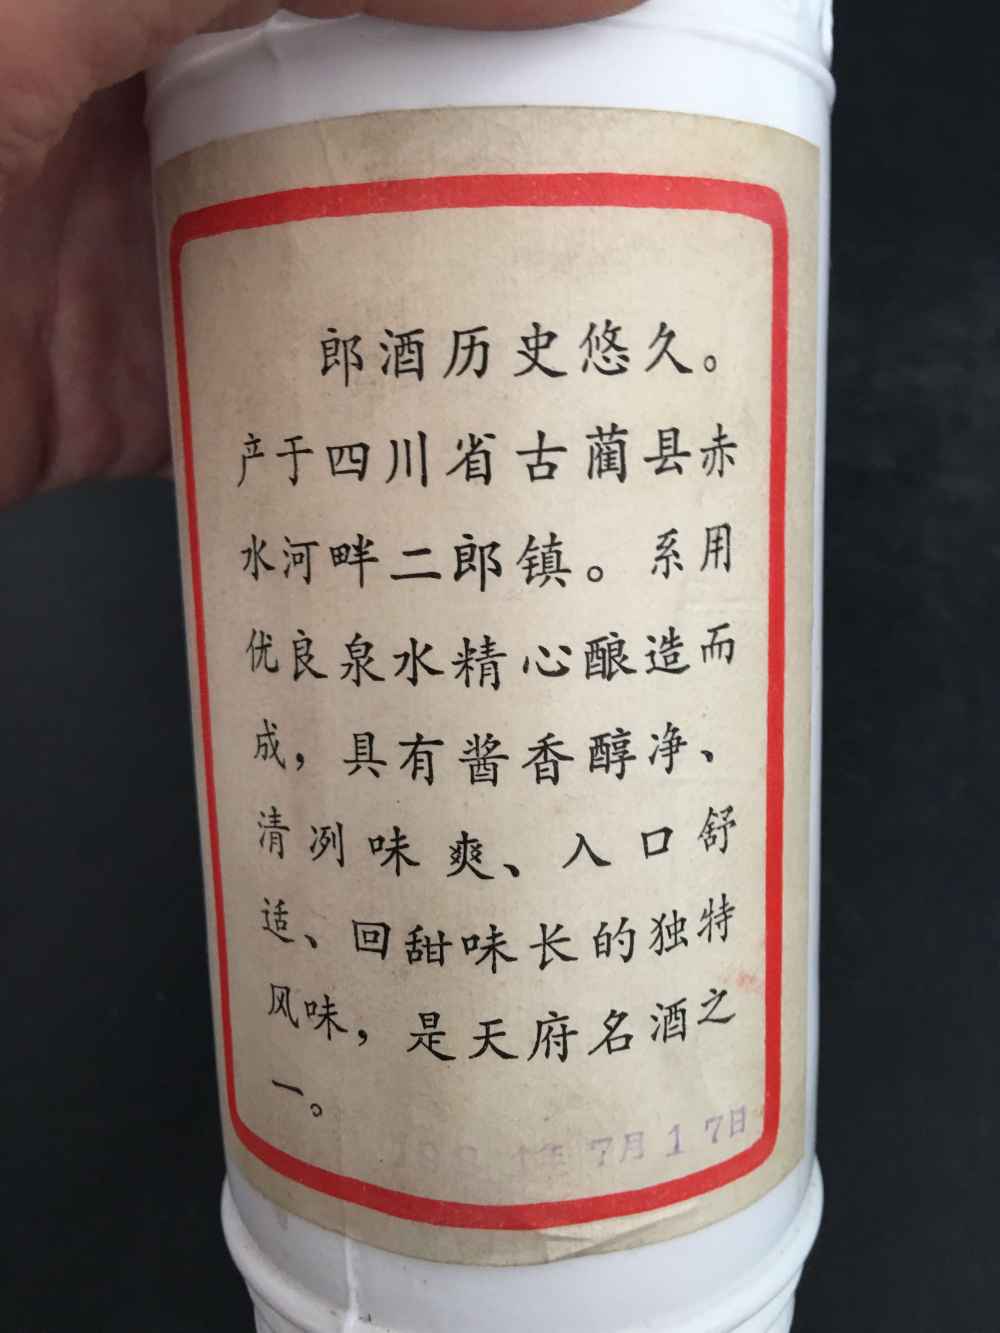 郎酒历史悠久。
产于四川省古蔺县赤
水河畔二郎镇。系用
优良泉水精心酿造而
成，具有酱香醇净、
清冽味爽、入口舒
适、回甜味长的独特
风味，是天府名酒之
一。
年7月17日